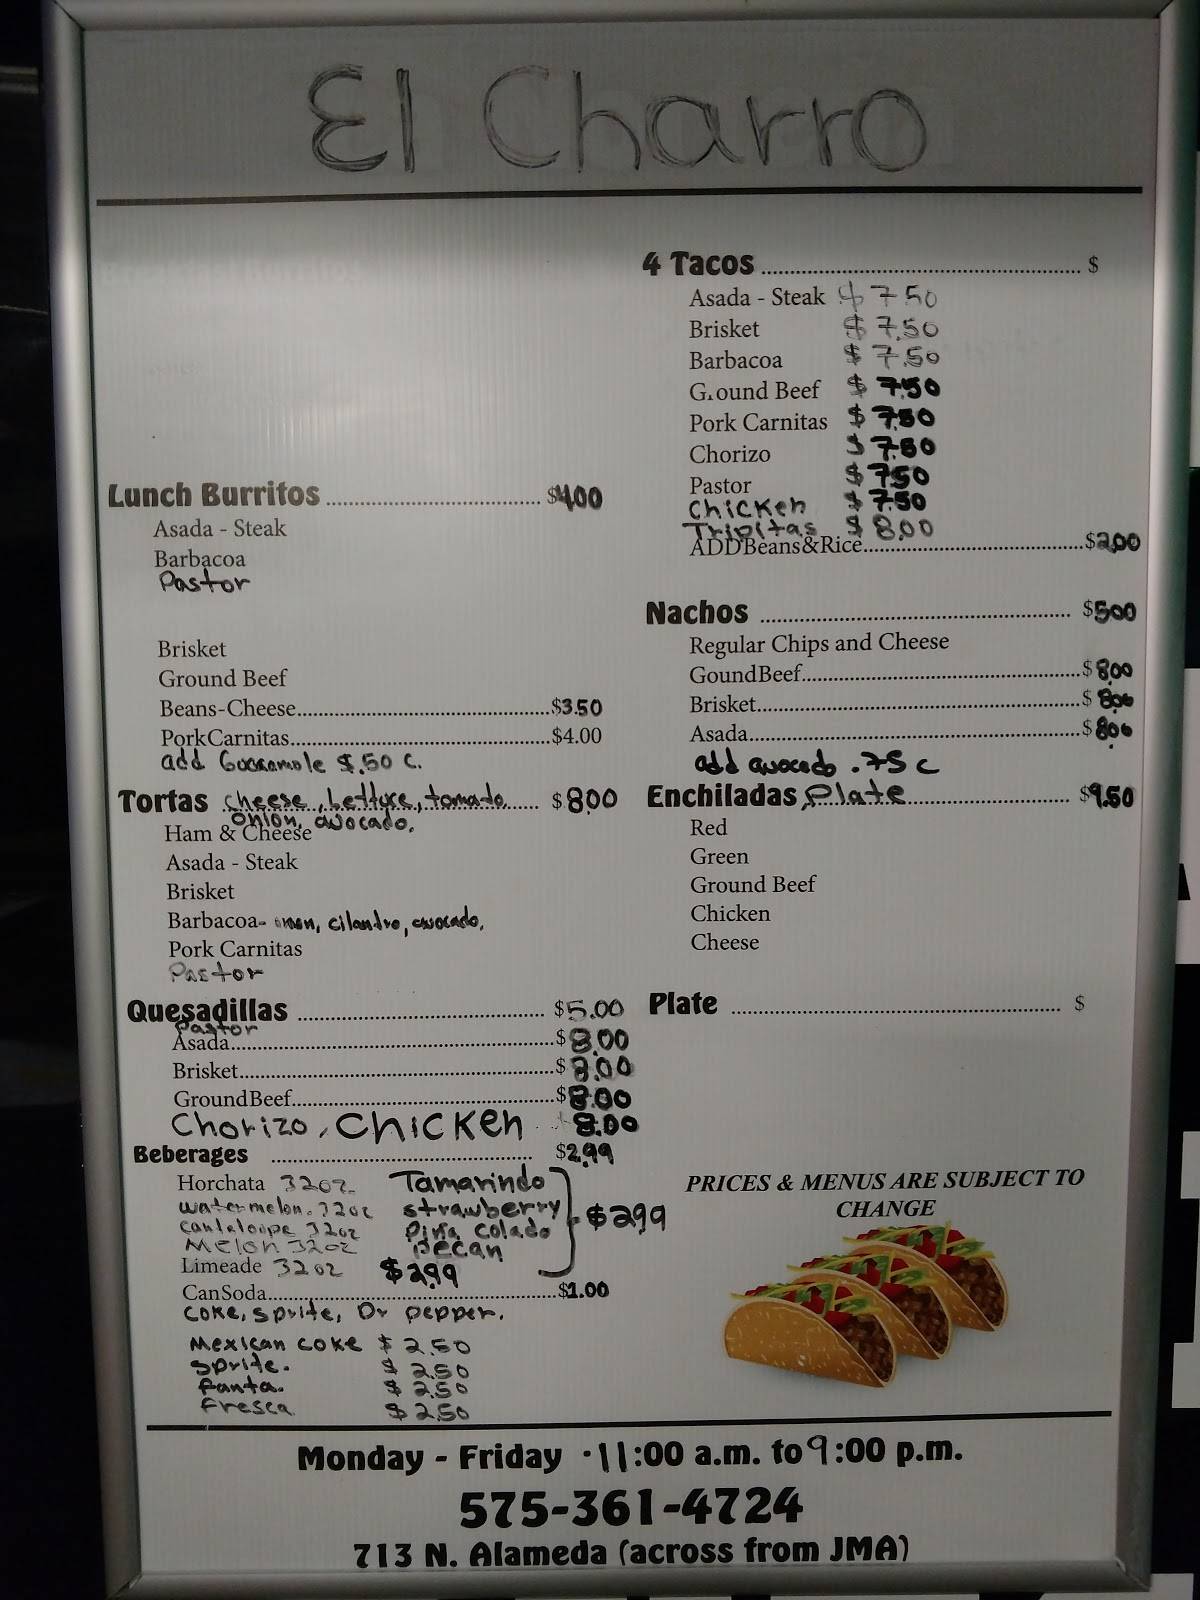 El Charro
Lunch Burritos $4.00
Asada - Steak
Barbacoa
Pastor
Brisket
Ground Beef
Beans-Cheese $3.50
PorkCarnitas $4.00
add Guacamole $.50 c.
Tortas cheese, Lettuce, tomato $8.00
onion, avocado.
Ham & Cheese
Asada - Steak
Brisket
Barbacoa- onion, cilantro, avocado,
Pork Carnitas
Pastor
Quesadillas $5.00
Pastor
Asada $8.00
Brisket $8.00
GroundBeef $8.00
Chorizo, Chicken 8.00
Beberages $2.99
Horchata 32oz Tamarindo
watermelon. 32oz strawberry $2.99
cantaloupe 32oz Piña colado
Melon 32oz pecan
Limeade 32oz $2.99
CanSoda $1.00
coke, sprite, Dr pepper.
Mexican coke $2.50
sprite. $2.50
fanta. $2.50
fresca $2.50
4 Tacos $
Asada - Steak $7.50
Brisket $7.50
Barbacoa $7.50
G.ound Beef $7.50
Pork Carnitas $7.50
Chorizo $7.50
Pastor $7.50
Chicken $7.50
Tripitas $8.00
ADDBeans&Rice $2.00
Nachos $5.00
Regular Chips and Cheese
GoundBeef $8.00
Brisket $8.00
Asada $8.00
add avocado .75 c
Enchiladas, plate $9.50
Red
Green
Ground Beef
Chicken
Cheese
Plate $
PRICES & MENUS ARE SUBJECT TO
CHANGE
Monday - Friday 11:00 a.m. to 9:00 p.m.
575-361-4724
713 N. Alameda (across from JMA)